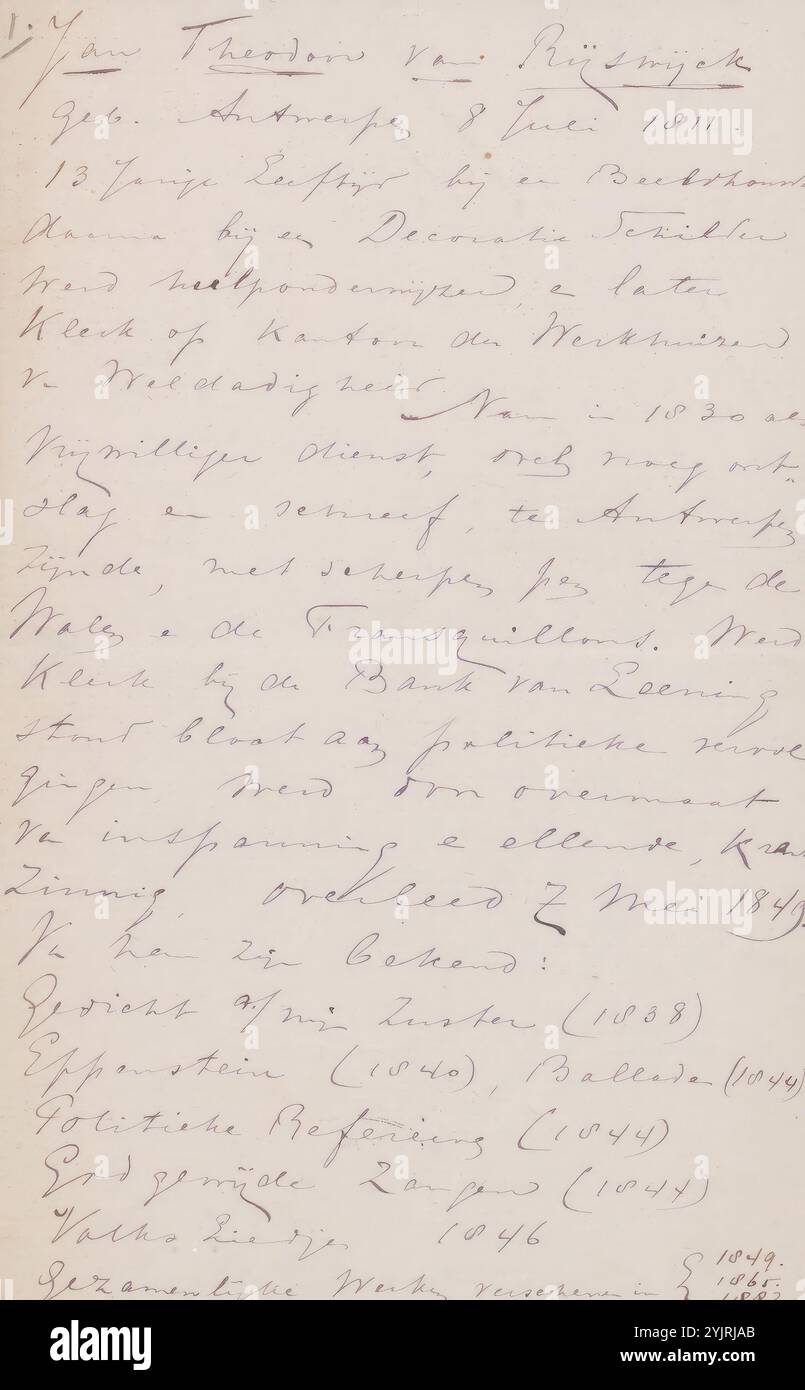 1. Jan Theodoor van Rijswijck
geb. Antwerpen 8 Juli 1811.
13 Jarige Leeftijd bij een Beeldhouwer
daarna bij een Decoratie Schilder
werd hulponderwijzer, en later
Klerk op Kantoor der Werkhuizen
van Weldadigheid.
Nam in 1830 als
Vrijwilliger dienst, vroeg ont„
slag en schreef, te Antwerpen
zijnde, met scherpen pen tegen de
Walen en de Fransquillons. Werd
Klerk bij de Bank van Leening
stond bloot aan politieke vervol
gingen, werd door overmaat
van inspanning en ellende, krank
zinnig, overleed 7 Mei 1849.
Van hem zijn bekend:
Gedicht a/mijn Zuster (1838)
Eppenstein (1840), Balladen (1844)
Politieke Refereinen (1844)
Godgewijde Zangen (1844)
Volks Liedjes 1846
Gezamentlijke Werken verschenen in { 1849.
1865.
1882
alamy
Image ID: 2YJRJAB
www.alamy.com